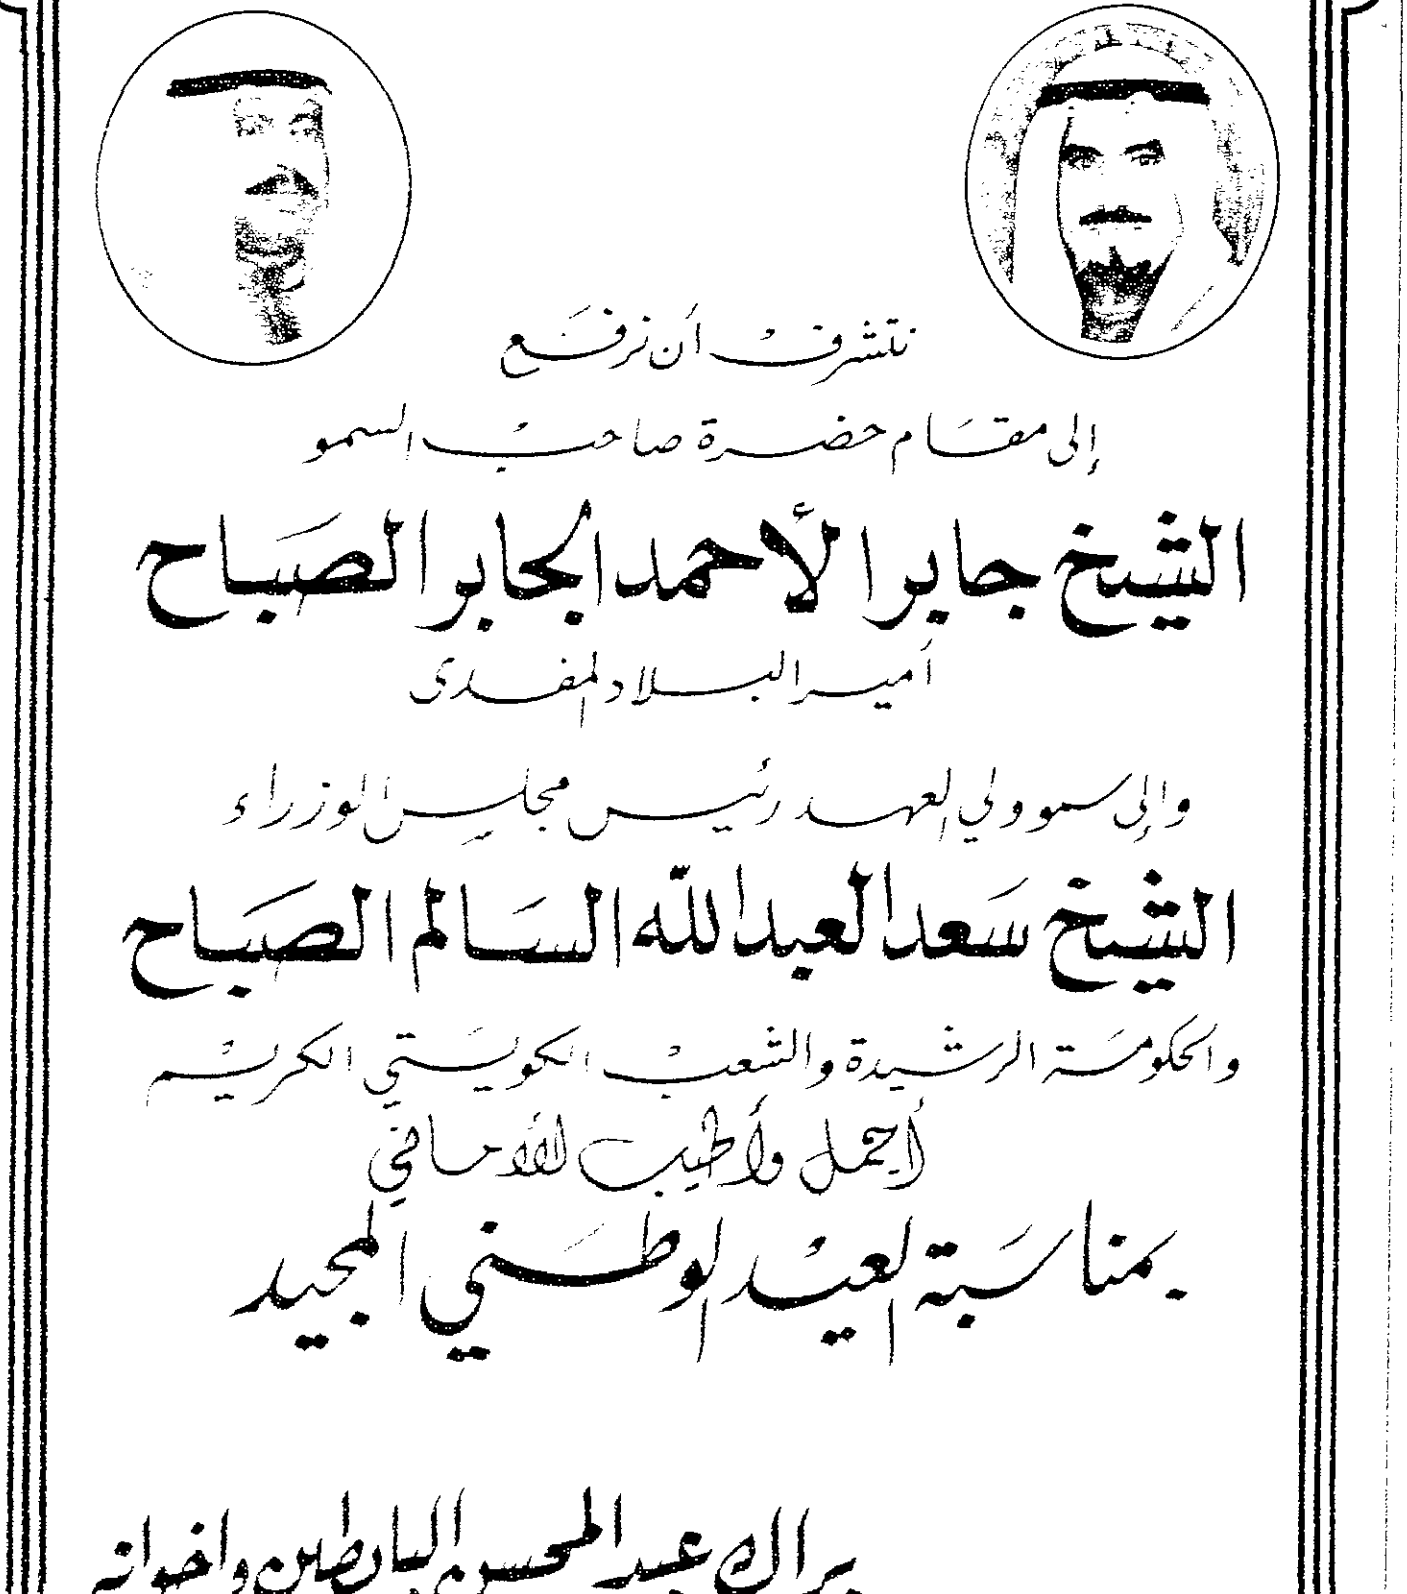 نتشرف أن نرفع
إلى مقام حضرة صاحب السمو
الشيخ جابر الأحمد الجابر الصباح
أمير البلاد المفدى
وإلى سمو ولي العهد رئيس مجلس الوزراء
الشيخ سعد العبدالله السالم الصباح
والحكومة الرشيدة والشعب الكويتي الكريم
أجمل وأطيب الأماني
بمناسبة العيد الوطني المجيد
براك عبد المحسن البابطين واخوانه